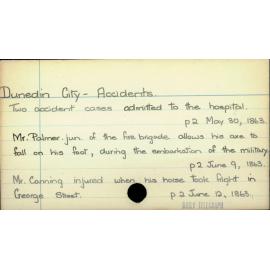 Dunedin City - Accidents.
Two accident cases admitted to the hospital.
p2 May 30, 1863.
Mr. Palmer. jun. of the fire brigade allows his axe to
fall on his foot, during the embarkation of the military.
p2 June 9, 1863.
Mr. Canning injured when his horse took fright in
George Street. p2 June 12, 1863.
DAILY TELEGRAPH